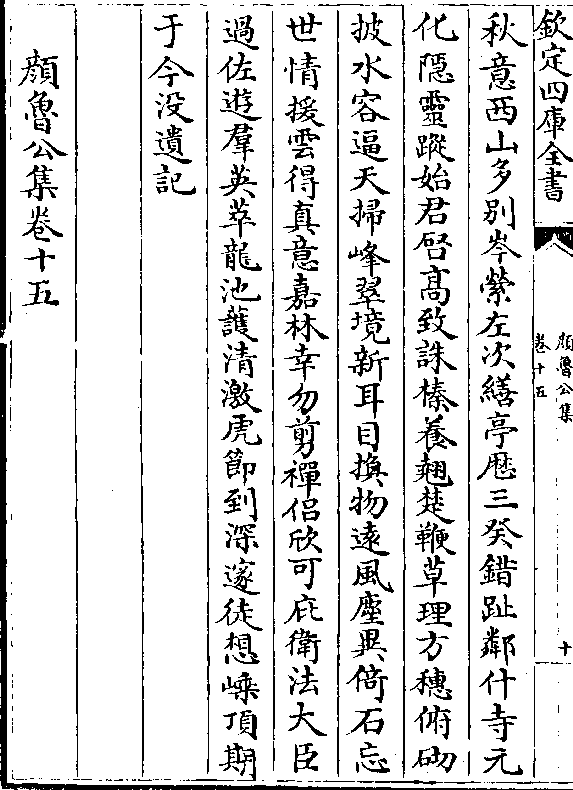 欽定四庫全書
顔魯公集
卷十五
十
秋意西山多别岑縈左次繕亭厯三癸錯趾鄰什寺元
化隠靈蹤始君啓髙致誅榛養翹楚鞭草理方穗俯砌
披水容逼天掃峰翠境新耳目換物逺風塵異倚石忘
世情援雲得真意嘉林幸勿剪禪侣欣可庇衛法大臣
過佐遊羣英萃龍池護清激虎節到深邃徒想嵊頂期
于今没遺記
顔魯公集卷十五